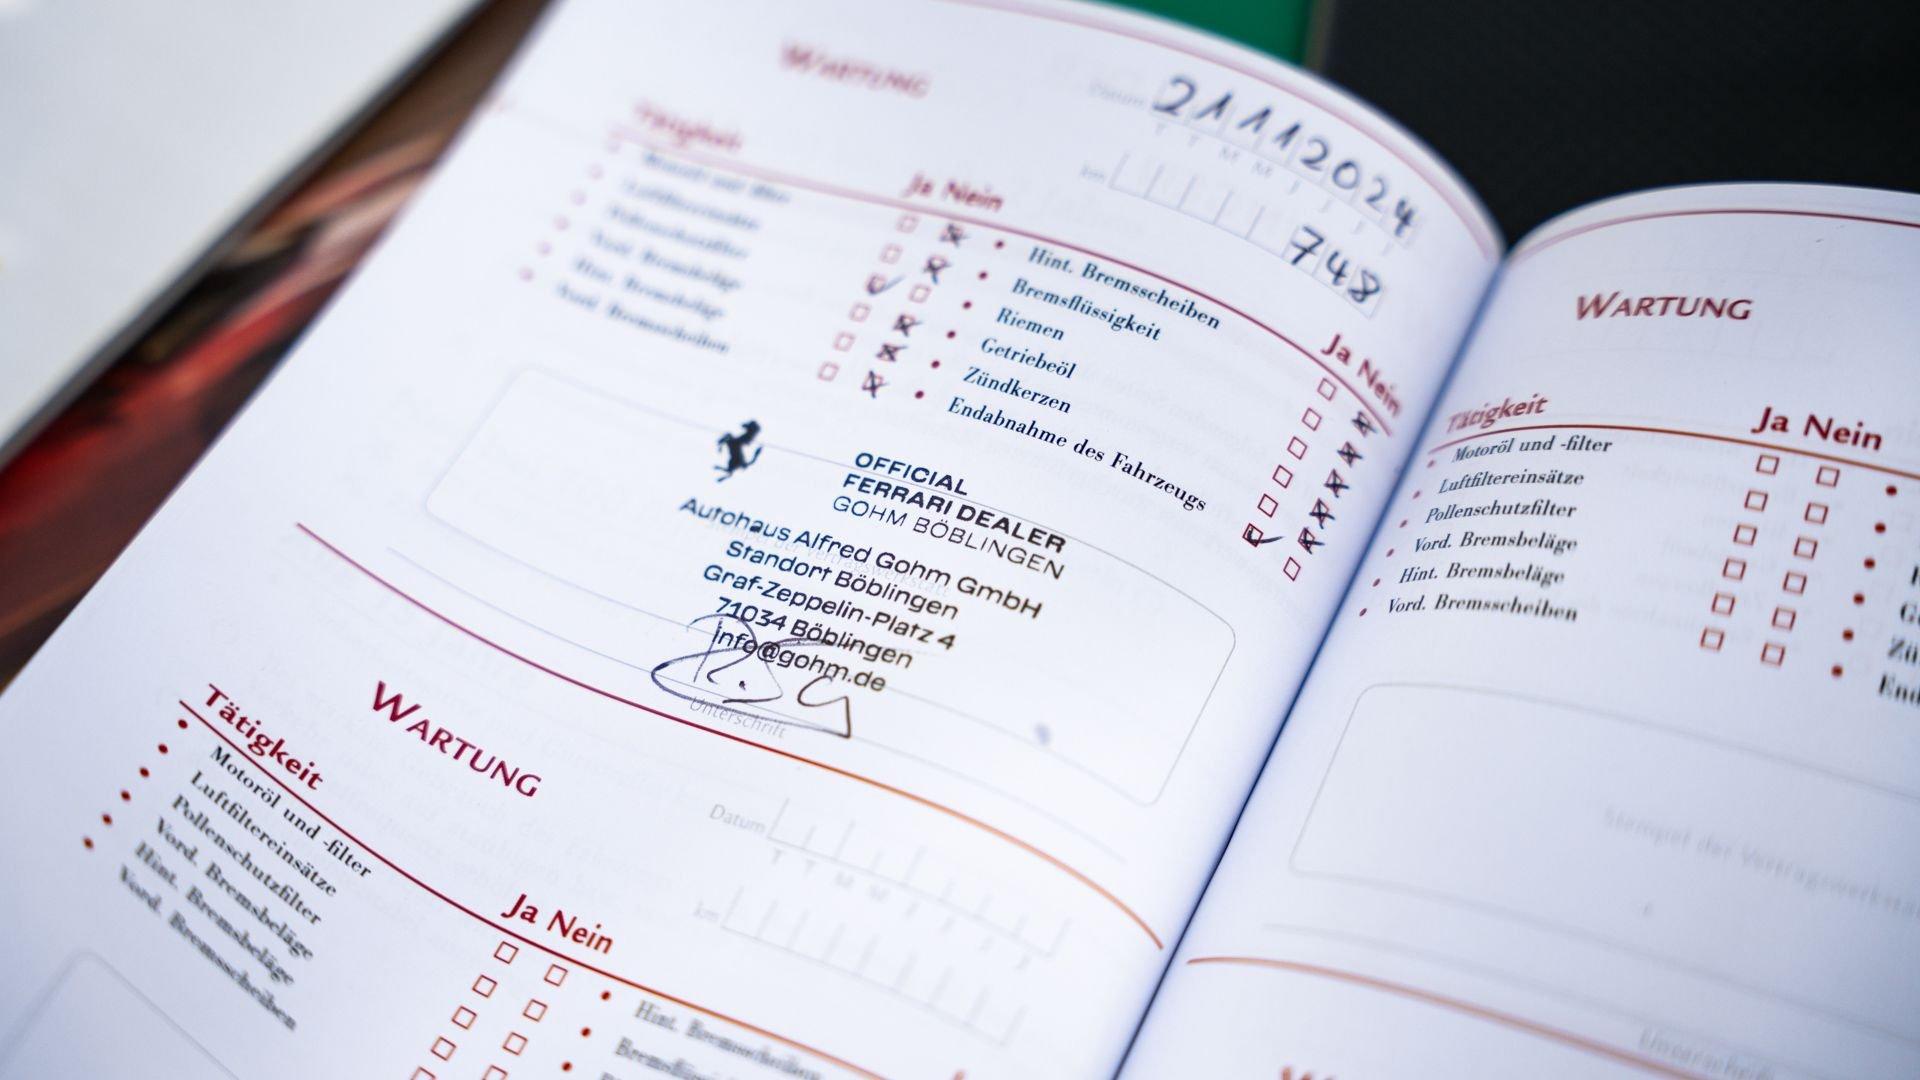 WARTUNG
Datum 21112024
T T M M J J J J
km 748
Tätigkeit
Ja Nein
Vord. Bremsbeläge
Hint. Bremsbeläge
Vord. Bremsscheiben
Ja Nein
Hint. Bremsscheiben
Bremsflüssigkeit
Riemen
Getriebeöl
Zündkerzen
Endabnahme des Fahrzeugs
OFFICIAL
FERRARI DEALER
GOHM BÖBLINGEN
Autohaus Alfred Gohm GmbH
Standort Böblingen
Graf-Zeppelin-Platz 4
71034 Böblingen
info@gohm.de
Unterschrift
WARTUNG
Datum
T T M M J J
km
Tätigkeit
Ja Nein
Motoröl und -filter
Luftfiltereinsätze
Pollenschutzfilter
Vord. Bremsbeläge
Hint. Bremsbeläge
Vord. Bremsscheiben
Hint. Bremsscheiben
WARTUNG
Tätigkeit
Ja Nein
Motoröl und -filter
Luftfiltereinsätze
Pollenschutzfilter
Vord. Bremsbeläge
Hint. Bremsbeläge
Vord. Bremsscheiben
Stempel der Vertragswerkstatt
Unterschrift